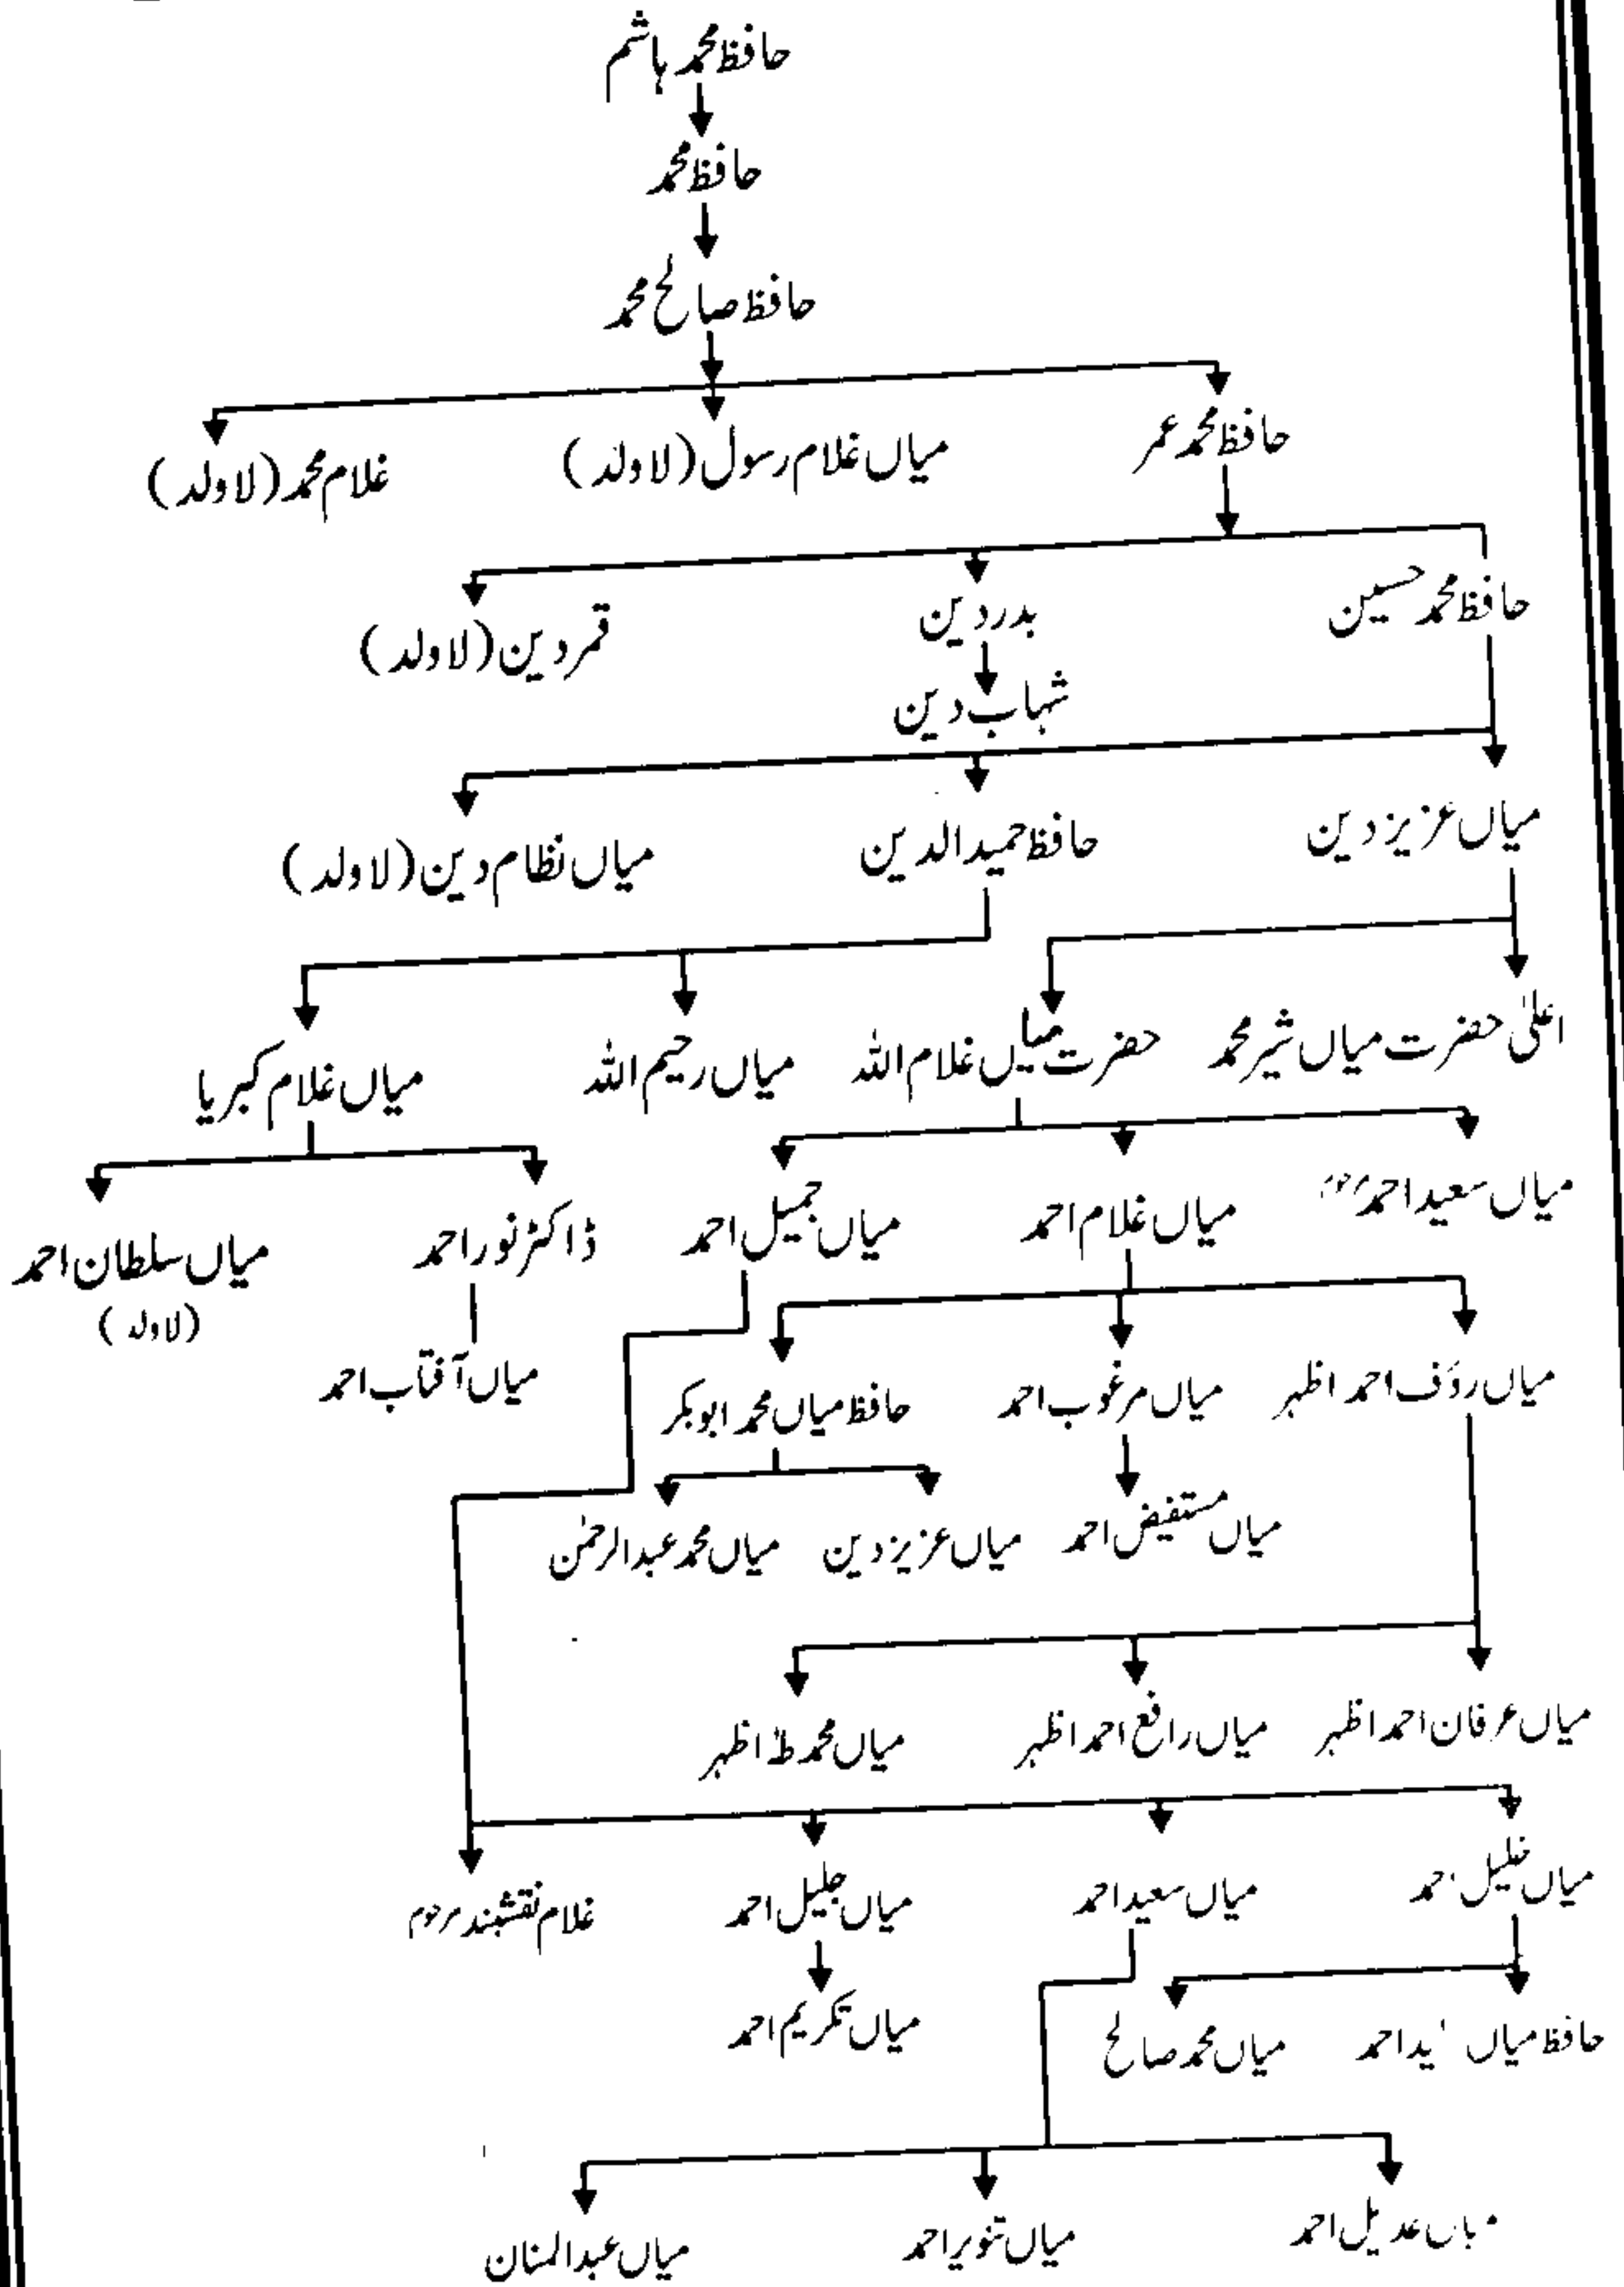 حافظ محمد ہاشم
حافظ محمد
حافظ صالح محمد
حافظ محمد عمر
میاں غلام رسول (لاولد)
غلام محمد (لاولد)
حافظ محمد حسین
بدر دین
قمر دین (لاولد)
شہاب دین
میاں عزیز دین
حافظ حمید الدین
میاں نظام دین (لاولد)
اعلیٰ حضرت میاں شیر محمد
حضرت میاں غلام اللہ
میاں رحیم اللہ
میاں غلام کبریا
میاں سعید احمد مرحوم
میاں غلام احمد
میاں جمیل احمد
ڈاکٹر نور احمد
میاں سلطان احمد
(لاولد)
میاں رؤف احمد اظہر
میاں مرغوب احمد
حافظ میاں محمد ابوبکر
میاں آفتاب احمد
میاں مستفیض احمد
میاں عزیز دین
میاں محمد عبدالرحمٰن
میاں عرفان احمد اظہر
میاں رافع احمد اظہر
میاں محمد طہٰ اظہر
میاں خلیل احمد
میاں سعید احمد
میاں جلیل احمد
غلام نقشبند مرحوم
حافظ میاں احمد
میاں محمد صالح
میاں تکریم احمد
میاں عدیل احمد
میاں تنویر احمد
میاں عبدالمنان